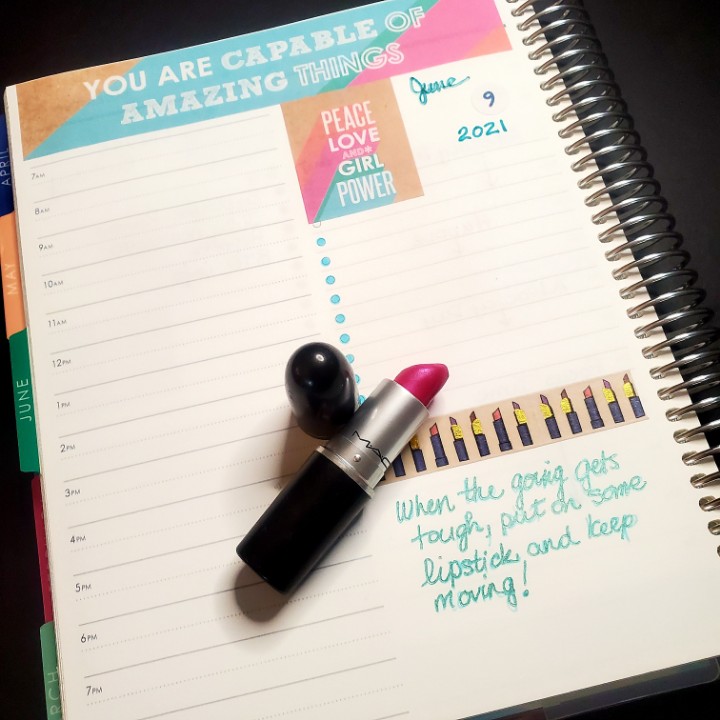 YOU ARE CAPABLE OF
AMAZING THINGS
June 9
2021
PEACE
LOVE
AND
GIRL
POWER
APRIL
MAY
JUNE
7AM
8AM
9AM
10AM
11AM
12PM
1PM
2PM
3PM
4PM
5PM
6PM
7PM
MAC
When the going gets
tough, put on some
lipstick, and keep
moving!